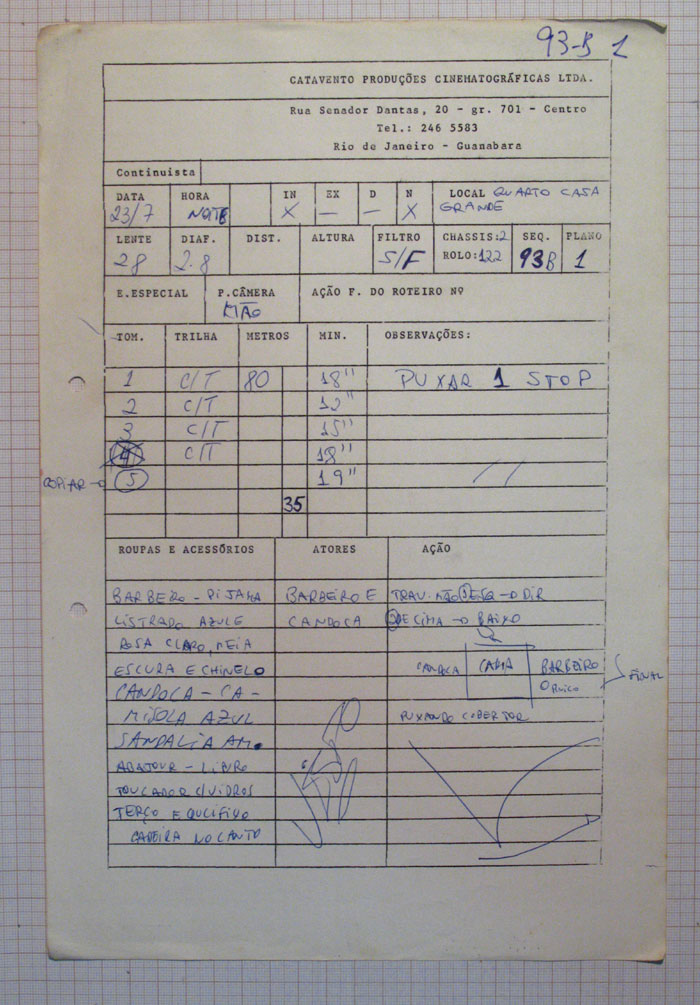 93-B 1
CATAVENTO PRODUÇÕES CINEMATOGRÁFICAS LTDA.
Rua Senador Dantas, 20 - gr. 701 - Centro
Tel.: 246 5583
Rio de Janeiro - Guanabara
Continuista
DATA HORA IN EX D N LOCAL QUARTO CASA
23/7 NOITE X — — X GRANDE
LENTE DIAF. DIST. ALTURA FILTRO CHASSIS:2 SEQ. PLANO
28 2.8 S/F ROLO:122 93B 1
E.ESPECIAL P.CÂMERA AÇÃO F. DO ROTEIRO Nº
MÃO
TOM. TRILHA METROS MIN. OBSERVAÇÕES:
1 C/T 80 18" PUXAR 1 STOP
2 C/T 12"
3 C/T 15"
4 C/T 18"
COPIAR 5 19"
35
ROUPAS E ACESSÓRIOS ATORES AÇÃO
BARBEIRO - PIJAMA BARBEIRO E TRAV. MÃO DIR
LISTRADO AZUL E CANDOCA DE CIMA BAIXO
ROSA CLARO, MEIA
ESCURA E CHINELO CANDOCA CAMA BARBEIRO
CANDOCA - CA- FINAL
MISOLA AZUL PUXANDO COBERTOR
SANDALIA AM.
ABAJOUR - LIVRO
TOUCADOR C/VIDROS
TERÇO E
CADEIRA NO CANTO